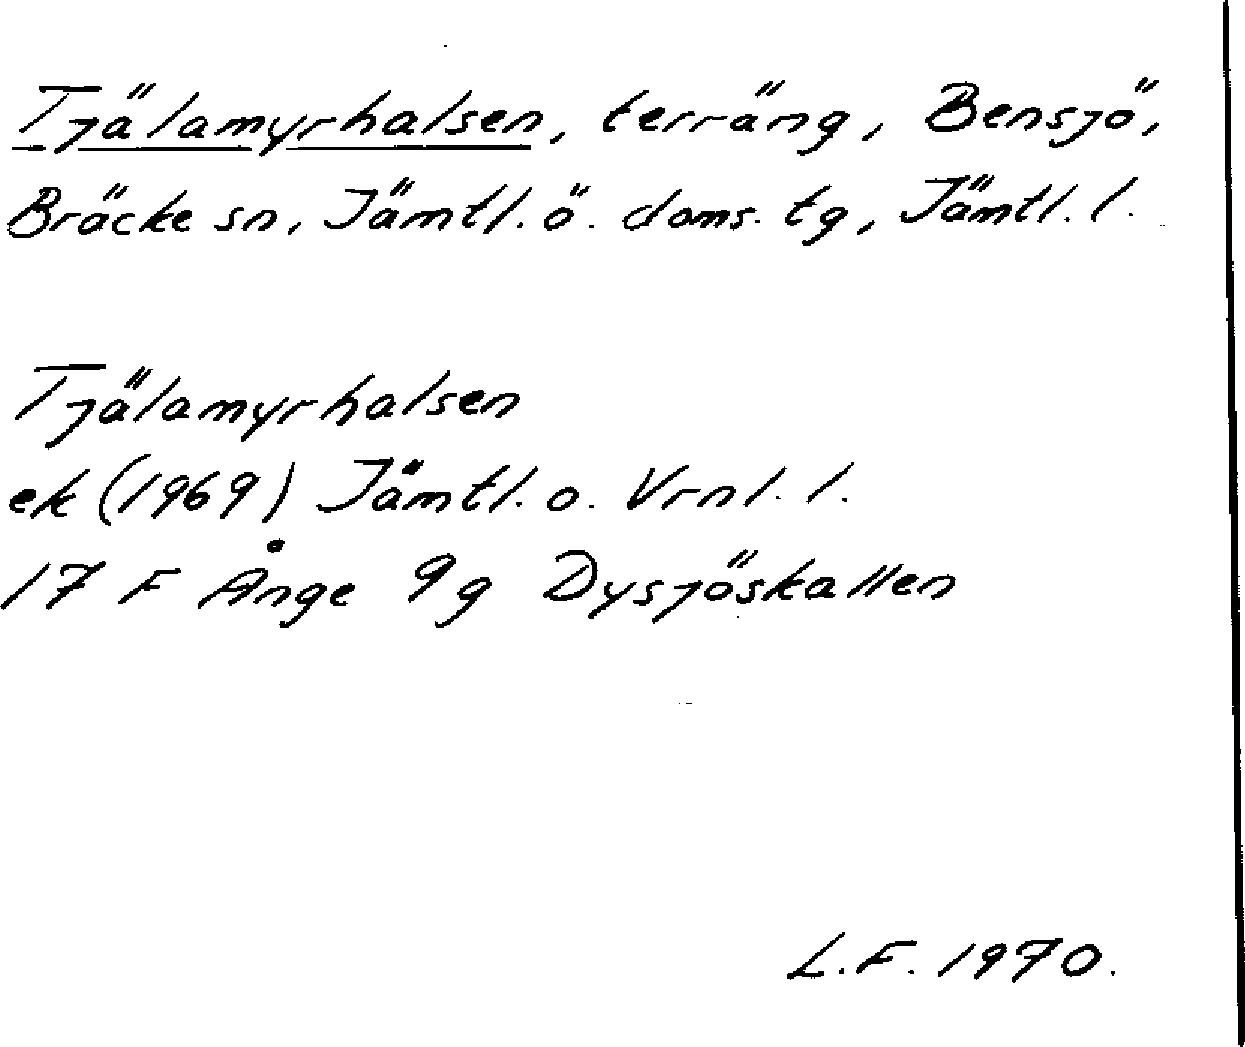 Tjälamyrhalsen, terräng, Bensjö,
Bräcke sn, Jämtl. ö. doms. tg, Jämtl. l.
Tjälamyrhalsen
ek (1969) Jämtl. o. Vrnl. l.
17 F Ånge 9g Dysjöskallen
L.F. 1970.